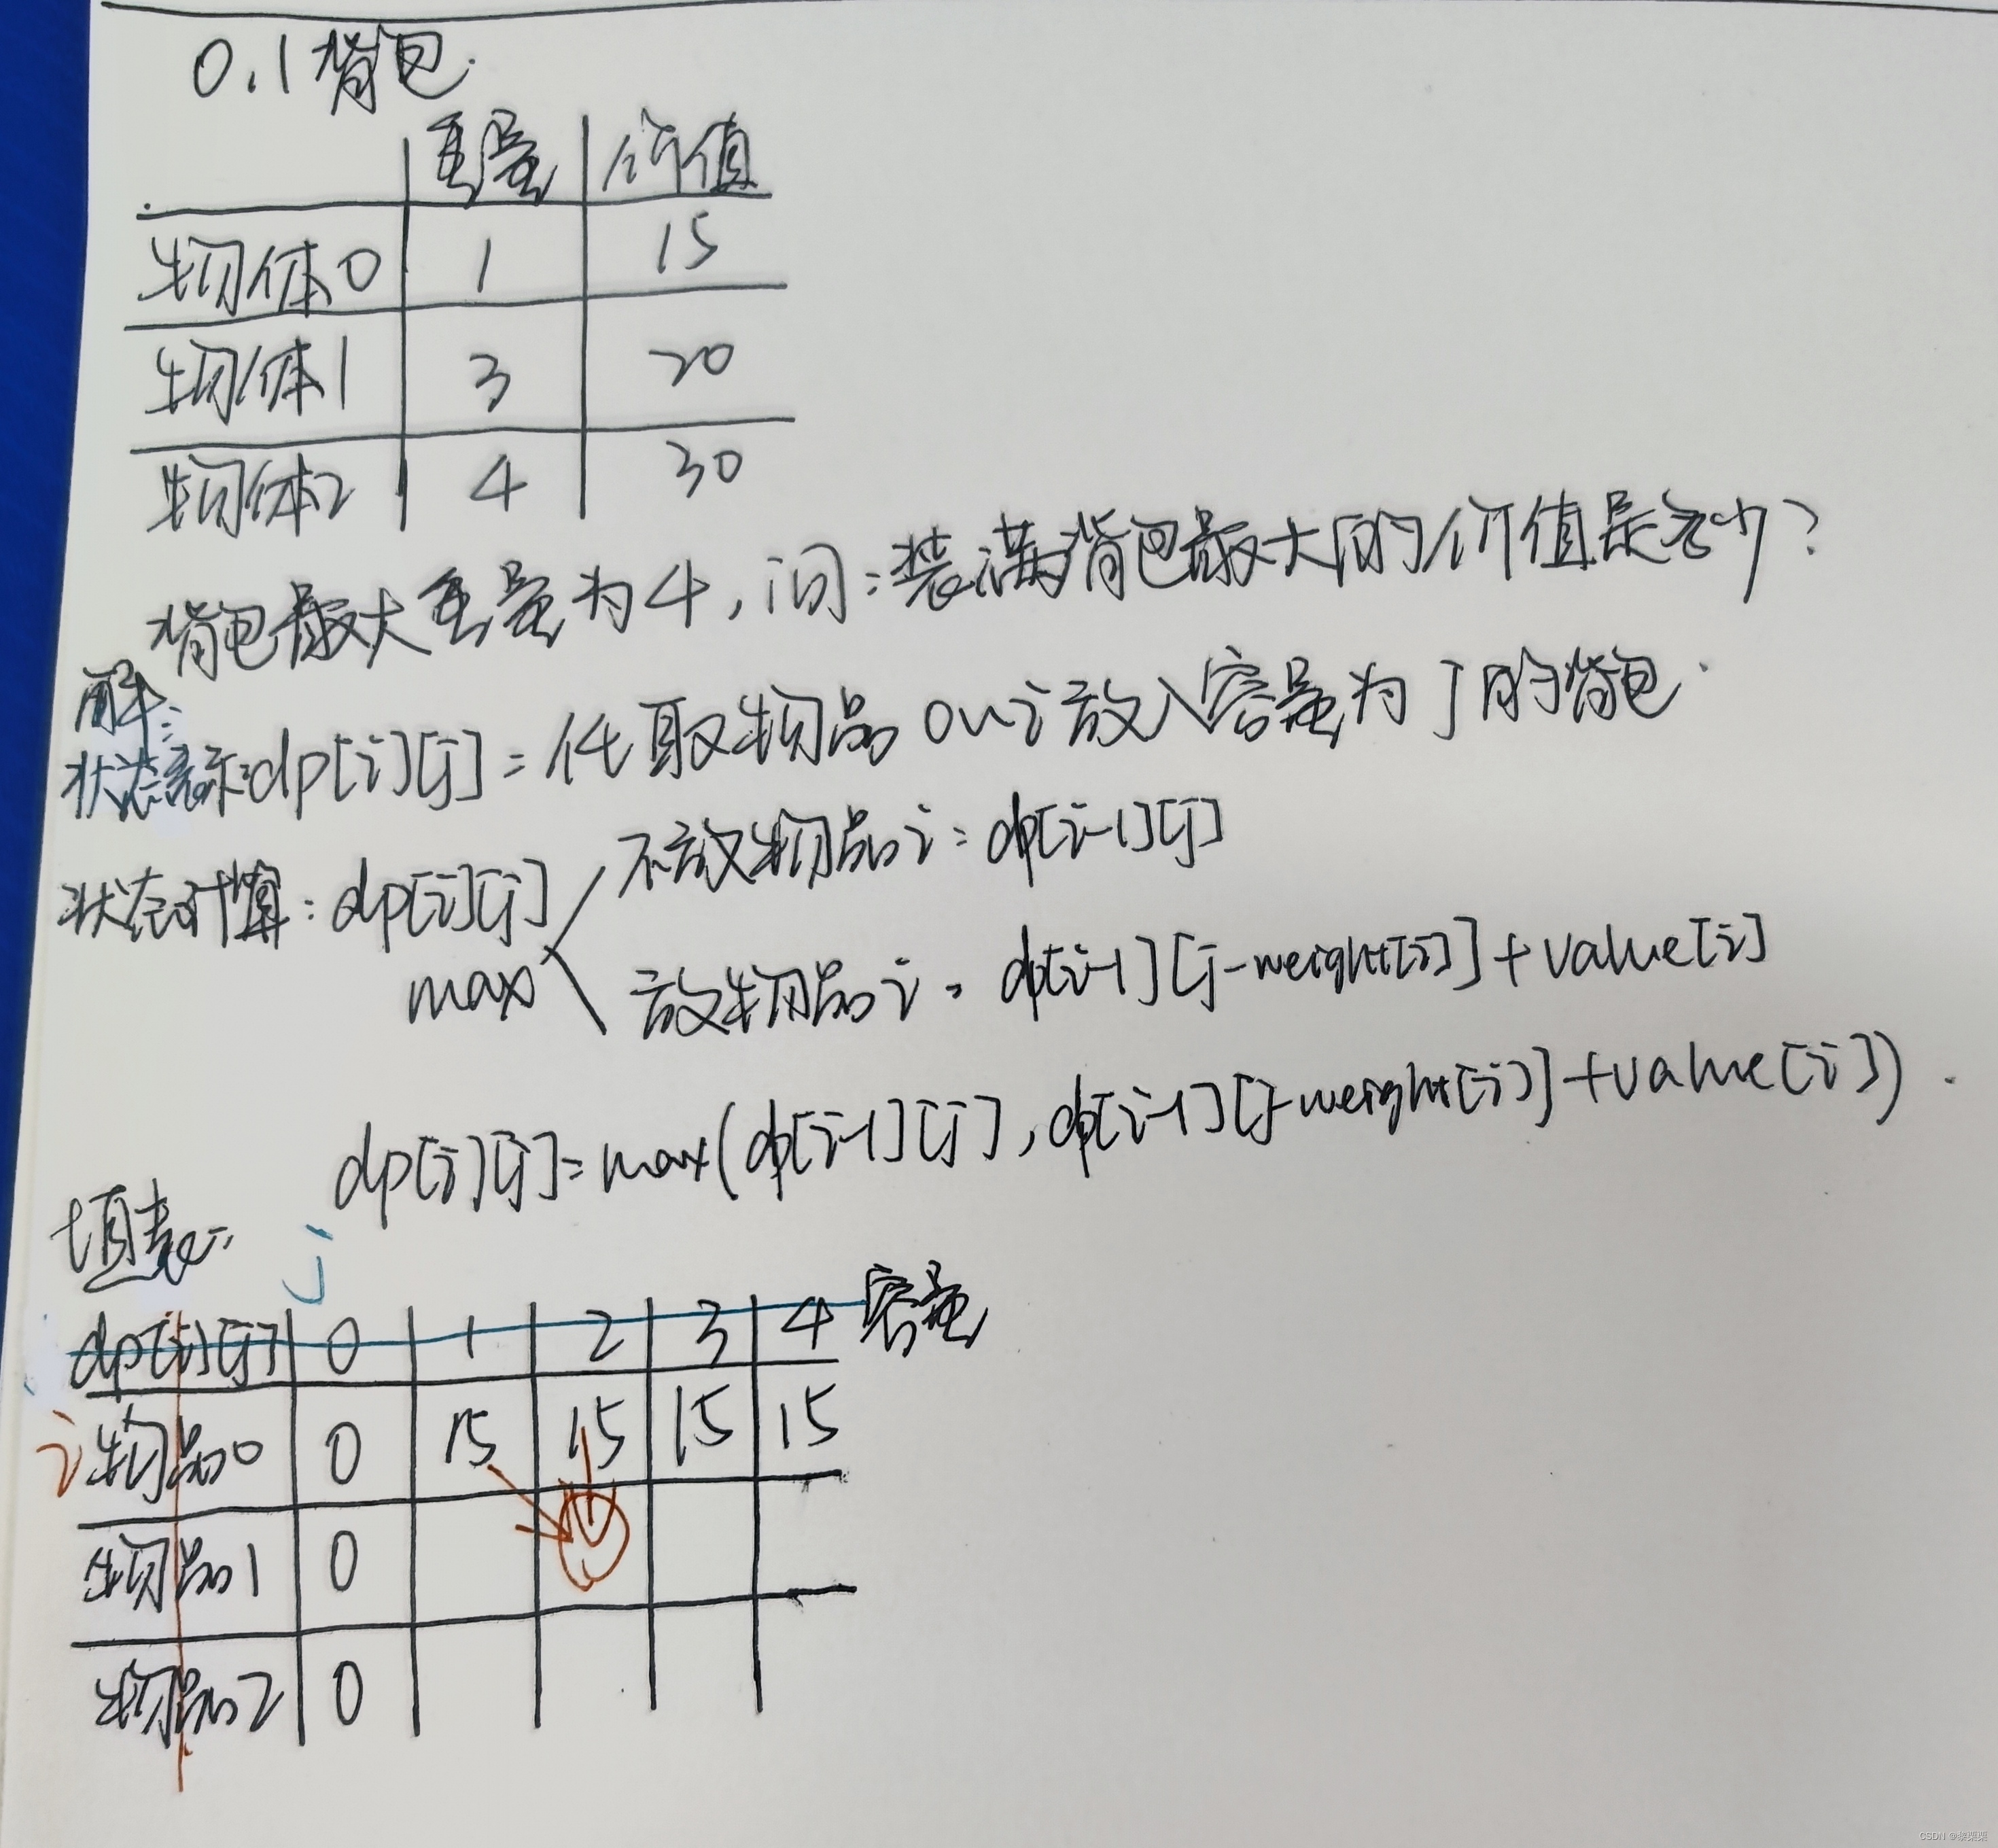 0.1背包.
重量 价值
物体0 1 15
物体1 3 20
物体2 4 30
背包最大重量为4,问:装满背包最大的价值是多少?
解:
状态表示:dp[i][j]=任取物品0~i放入容量为j的背包.
状态计算:dp[i][j] 不放物品i:dp[i-1][j]
max 放物品i:dp[i-1][j-weight[i]]+value[i]
dp[i][j]=max(dp[i-1][j],dp[i-1][j-weight[i]]+value[i]).
填表:
j
dp[i][j] 0 1 2 3 4 容量
i 物品0 0 15 15 15 15
物品1 0
物品2 0